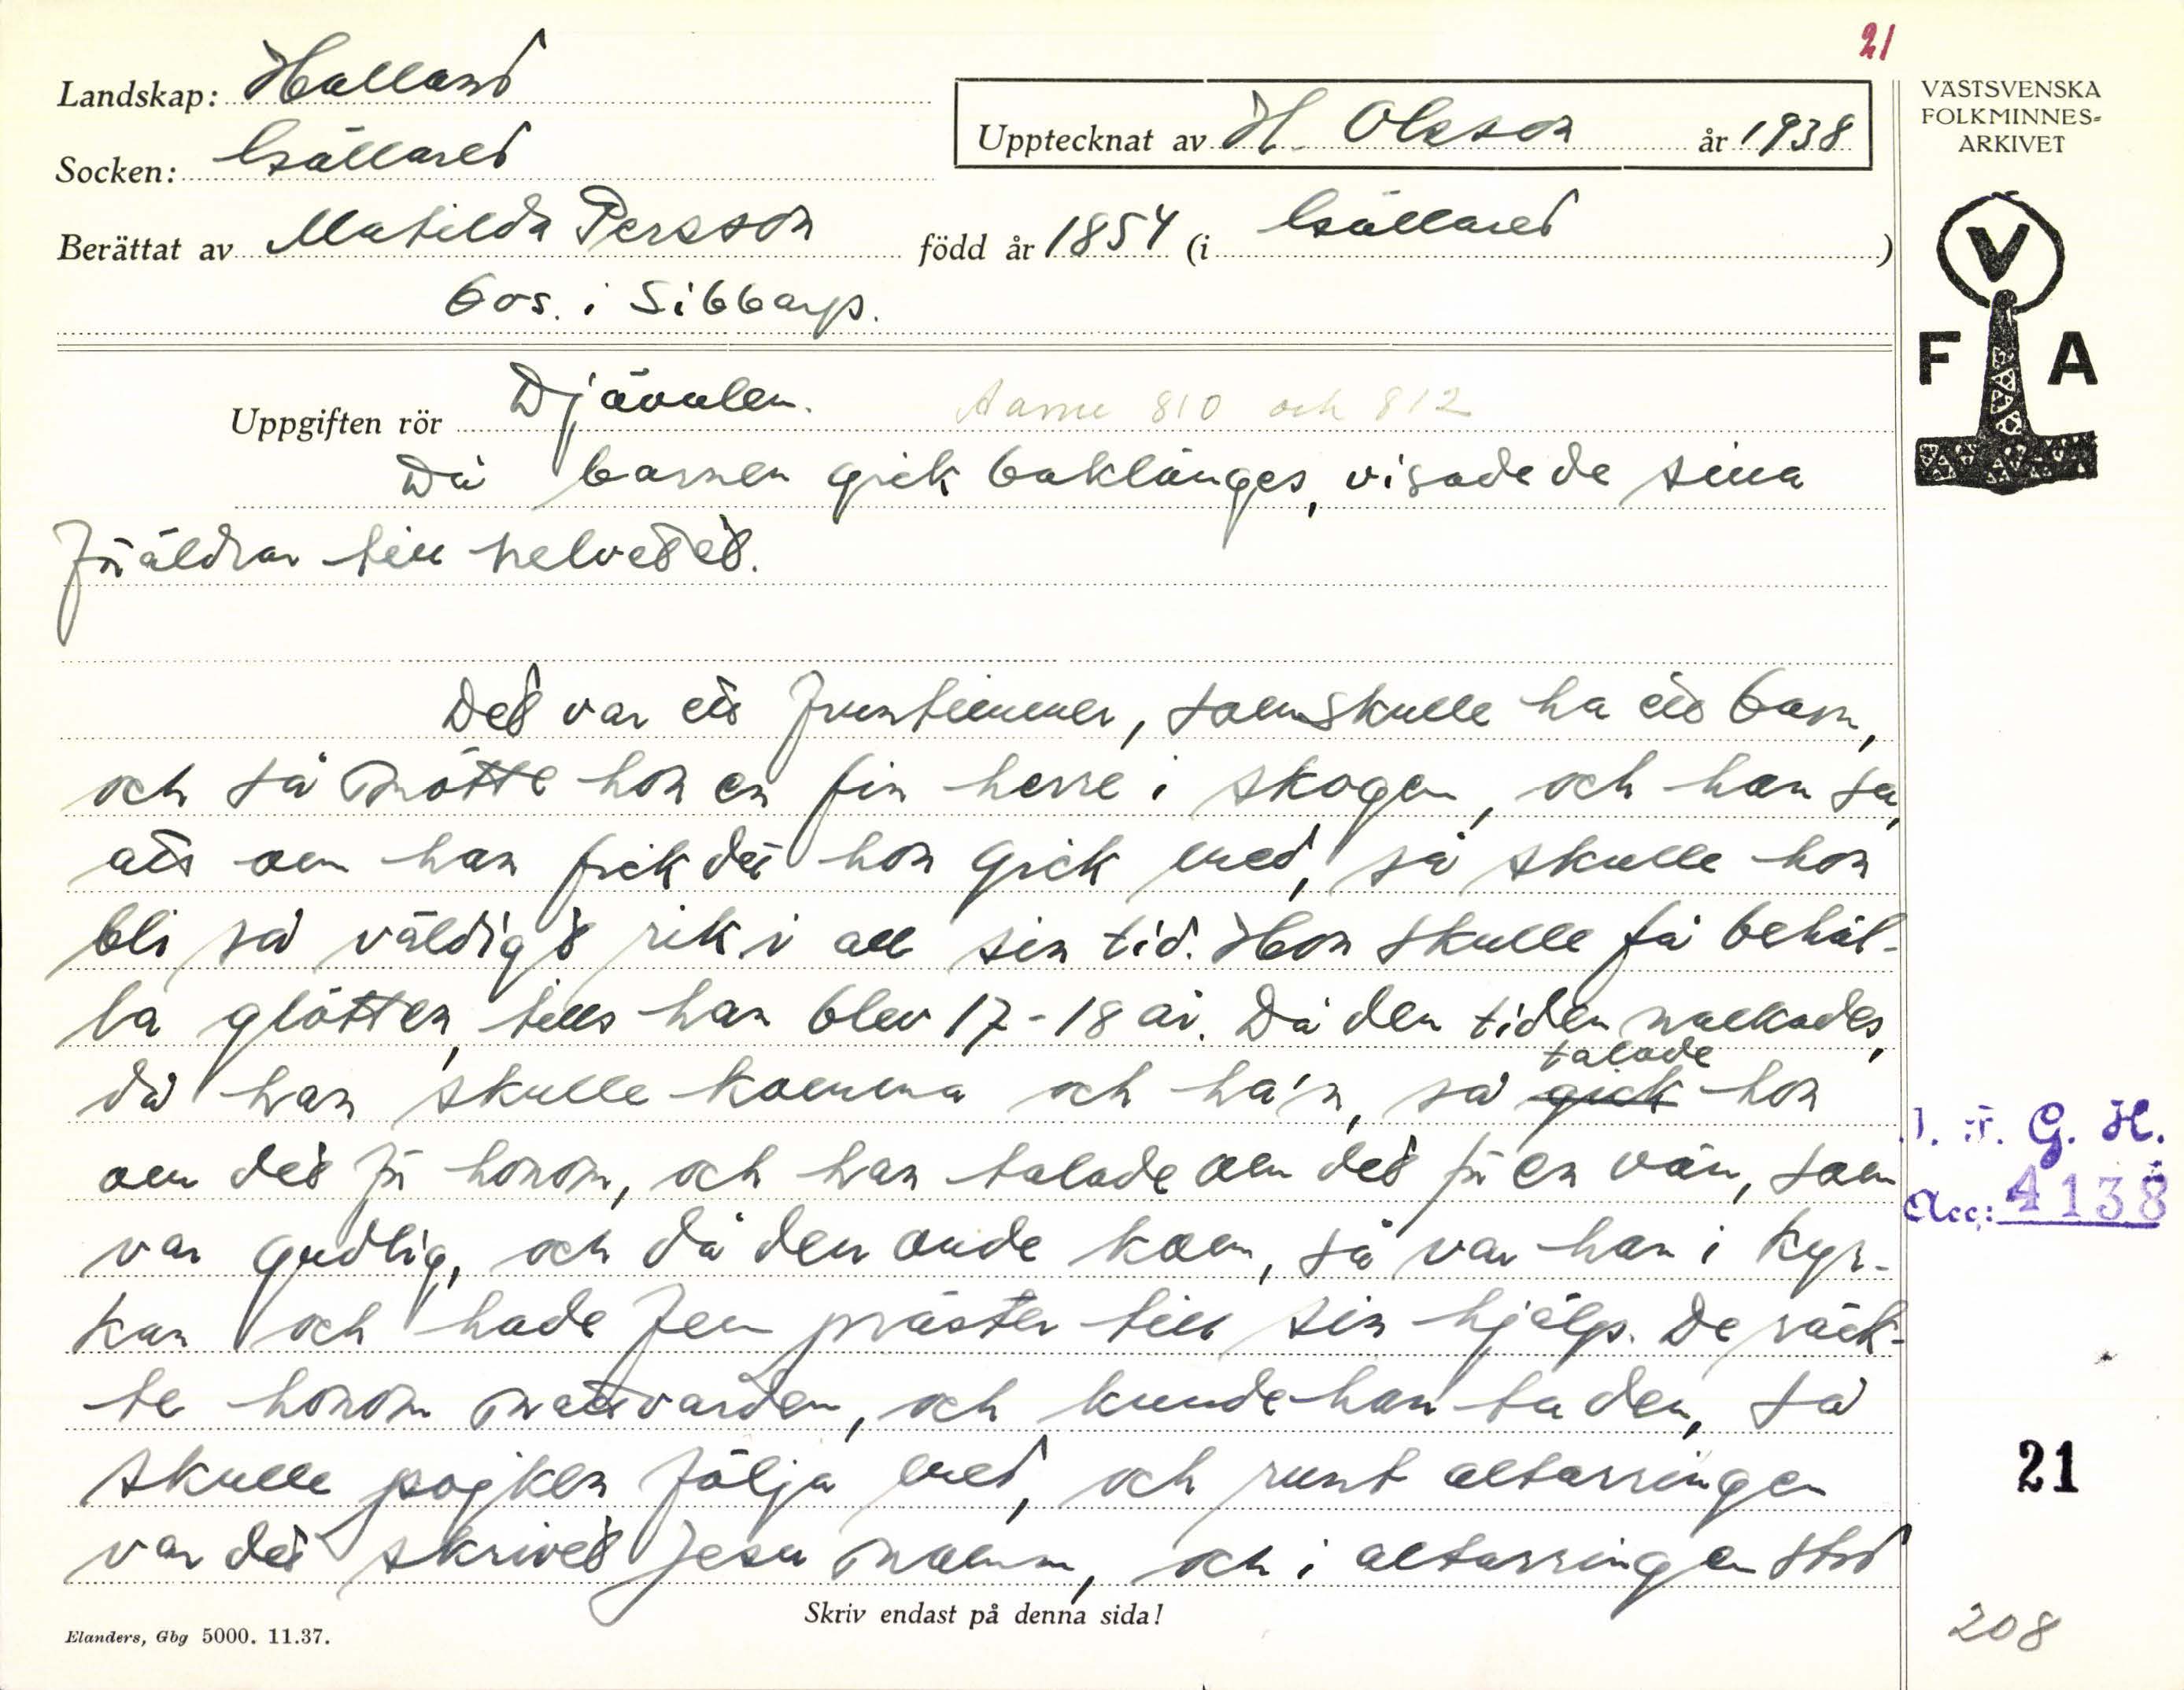 21
Landskap: Halland
Socken: Gällared
Upptecknat av H. Olsson år 1938
Berättat av Matilda Persson född år 1854 (i Gällared)
bos. i Sibbarp.
VÄSTSVENSKA
FOLKMINNES-
ARKIVET
V
F A
Uppgiften rör Djävulen. Aarne 810 och 812
Då barnen gick baklänges, visade de sina
föräldrar till helvetet.
Det var ett fruntimmer, som skulle ha ett barn,
och så mötte hon en fin herre i skogen, och han sa,
att om han fick det hon gick med, så skulle hon
bli så väldigt rik i all sin tid. Hon skulle få behål-
la glötten, tills han blev 17-18 år. Då den tiden nalkades,
då han skulle komma och ha'n, så gick talade hon
om det för honom, och han talade om det för en vän, som
var gudlig, och då den onde kom, så var han i kyr-
kan och hade fem präster till sin hjälp. De räck-
te honom nattvarden, och kunde han ta den, så
skulle pojken följa med, och runt altarringen
var det skrivet Jesu namn, och i altarringen stod
I. F. G. H.
Acc: 4138
21
Skriv endast på denna sida!
Elanders, Gbg 5000. 11.37.
208